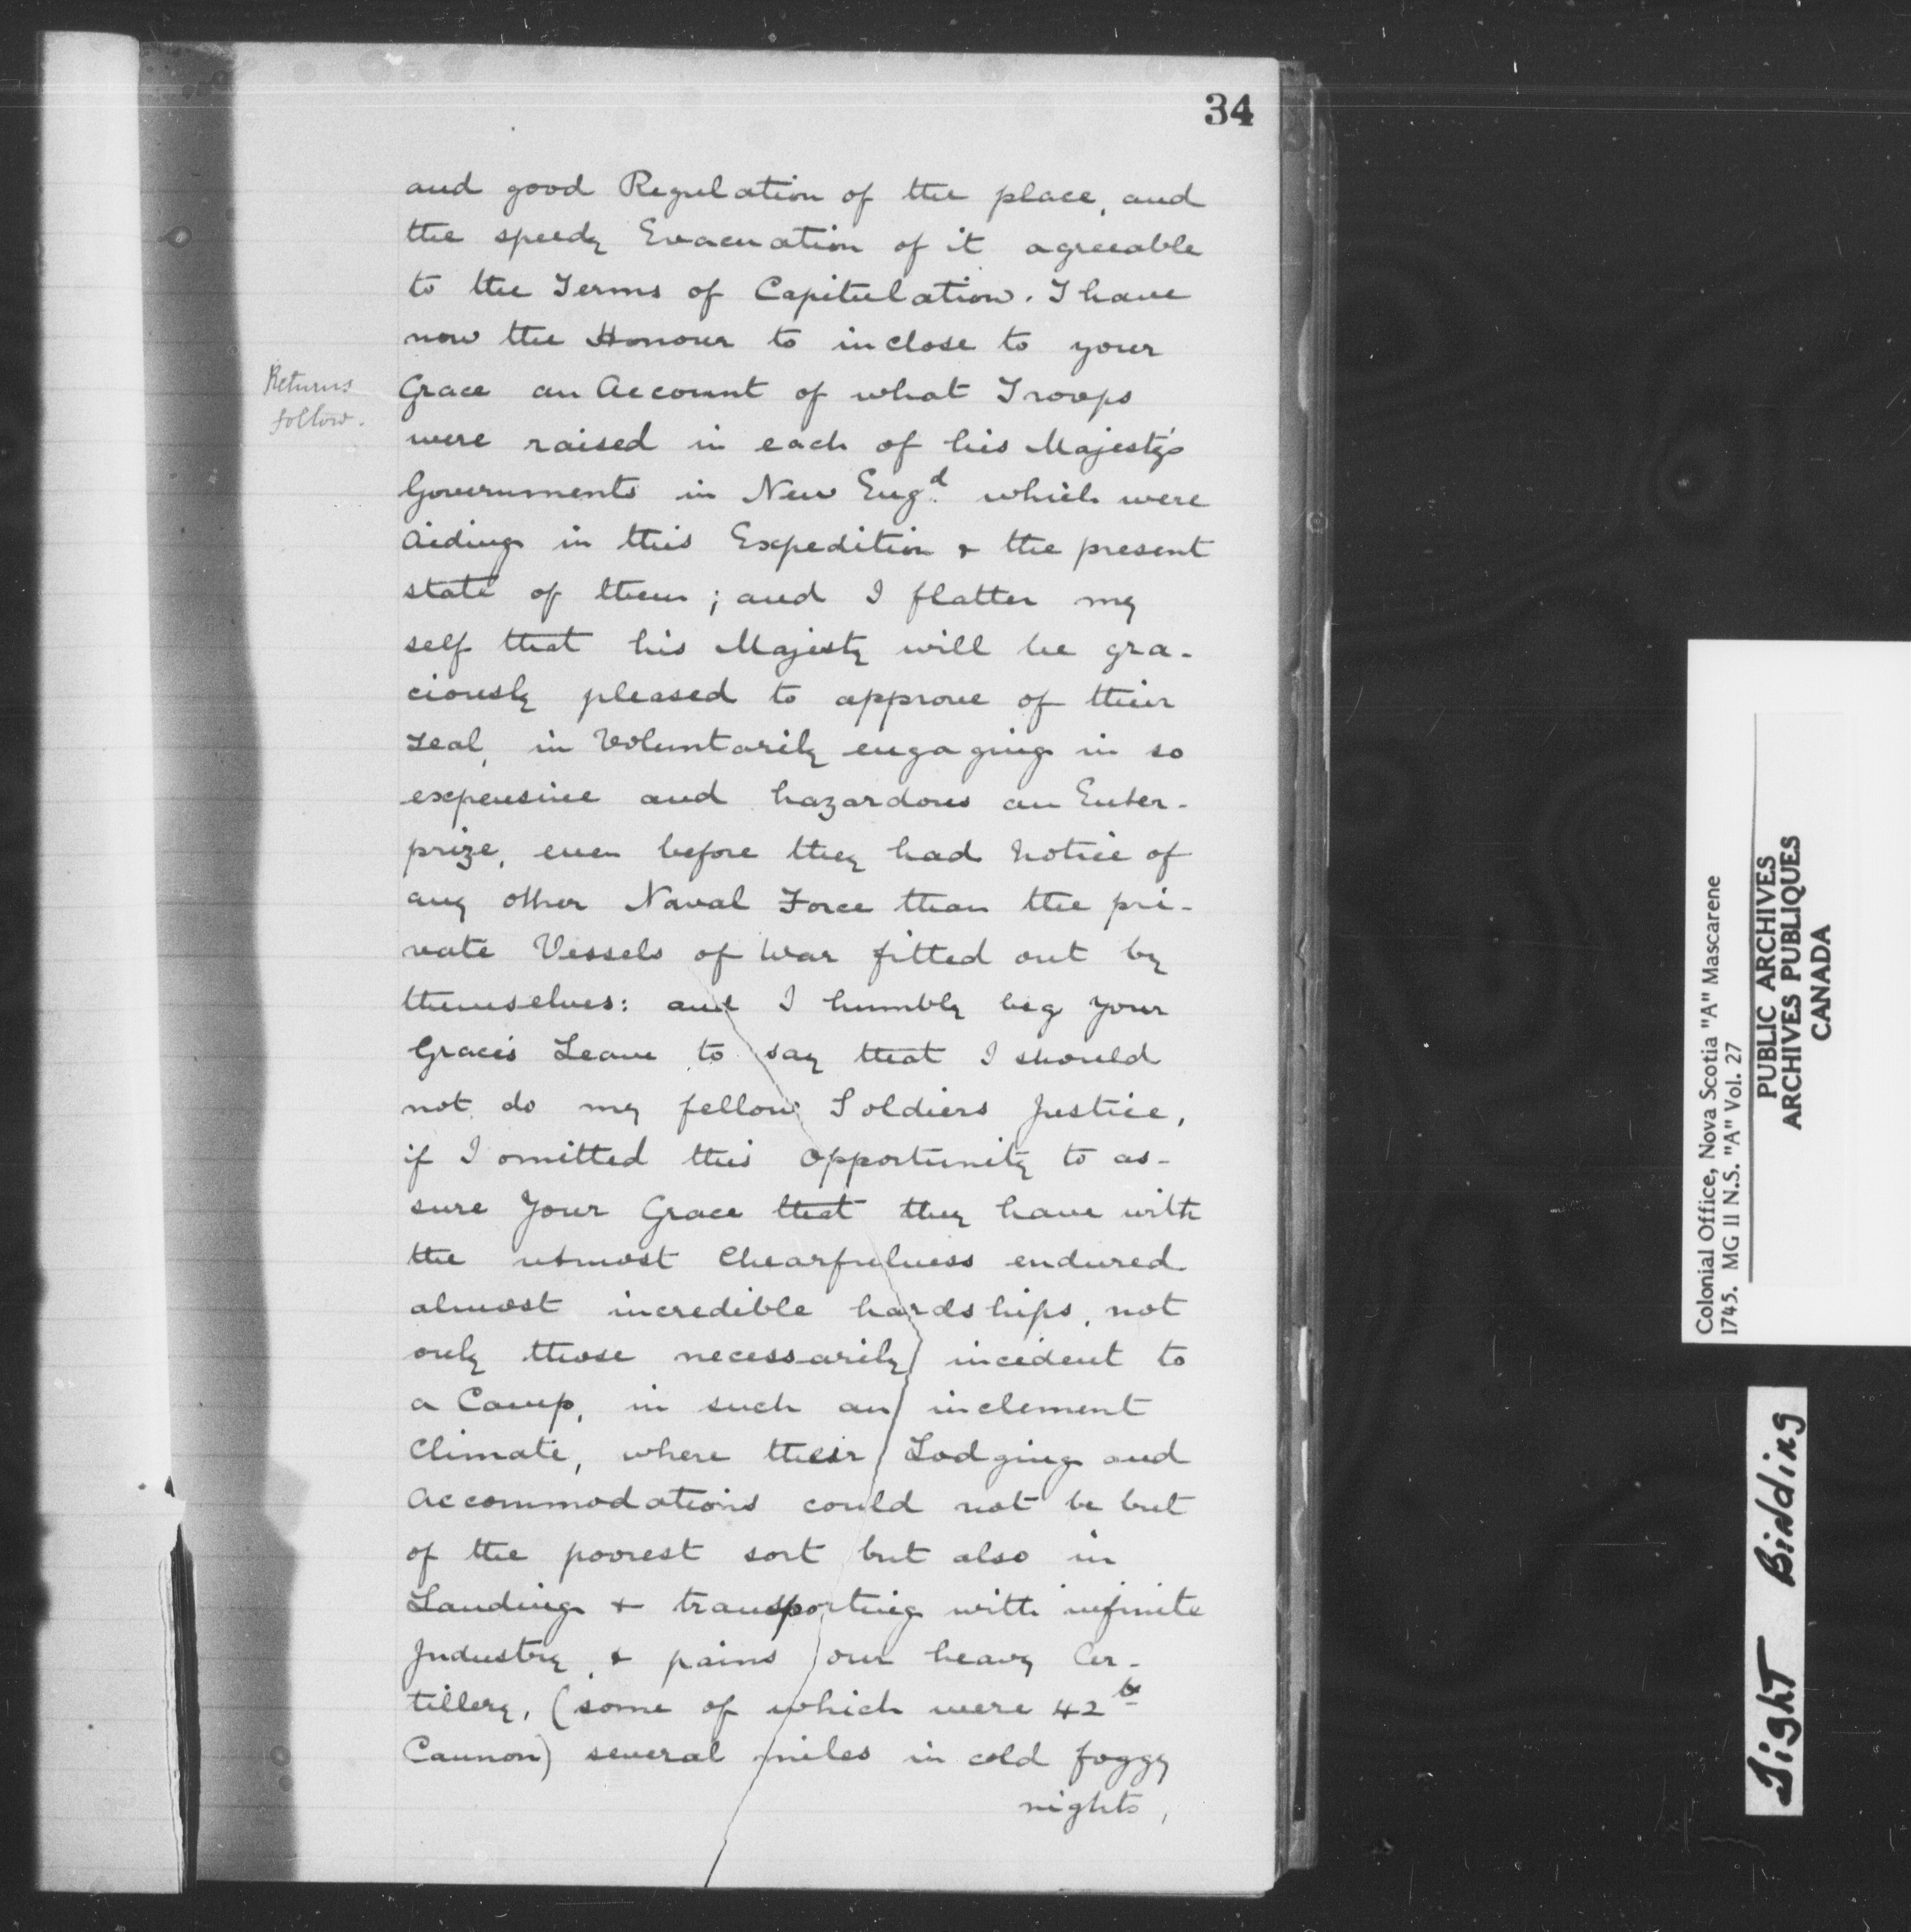 34
and good Regulation of the place, and
the speedy Evacuation of it agreeable
to the Terms of Capitulation. I have
now the Honour to inclose to your
Returns
follow.
Grace an Account of what Troops
were raised in each of his Majesty's
Governments in New Engd. which were
aiding in this Expedition & the present
state of them; and I flatter my
self that his Majesty will be gra-
ciously pleased to approve of their
zeal, in Voluntarily engaging in so
expensive and hazardous an Enter-
prize, even before they had Notice of
any other Naval Force than the pri-
vate Vessels of War fitted out by
themselves: and I humbly beg your
Grace's Leave to say that I should
not do my fellow Soldiers Justice,
if I omitted this opportunity to as-
sure Your Grace that they have with
the utmost Chearfulness endured
almost incredible hardships, not
only those necessarily incident to
a Camp, in such an inclement
Climate, where their Lodging and
accommodations could not be but
of the poorest sort but also in
Landing & transporting with infinite
Industry, & pains our heavy Ar-
tillery, (some of which were 42 lb
Cannon) several miles in cold foggy
nights,
Colonial Office, Nova Scotia "A" Mascarene
1745. MG 11 N.S. "A" Vol. 27
PUBLIC ARCHIVES
ARCHIVES PUBLIQUES
CANADA
Tight Binding